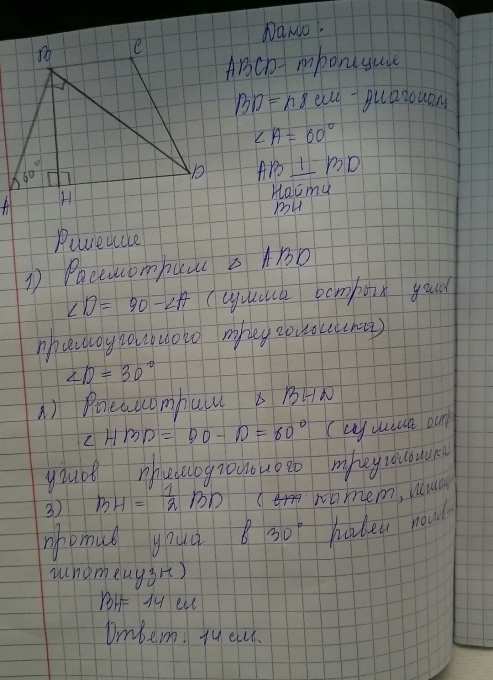 Дано:
B C
ABCD - трапеция
BD = 28 см - диагональ
∠A = 60°
60°
AB ⊥ BD
D
Найти
A H
BH
Решение
1) Рассмотрим △ ABD
∠D = 90 - ∠A (сумма острых углов
прямоугольного треугольника)
∠D = 30°
2) Рассмотрим △ BHD
∠HBD = 90 - D = 60° (сумма ост
углов прямоугольного треугольника
3) BH = 1/2 BD ( катет, лежащ
против угла в 30° равен полов-
гипотенузы)
BH = 14 см
Ответ: 14 см.